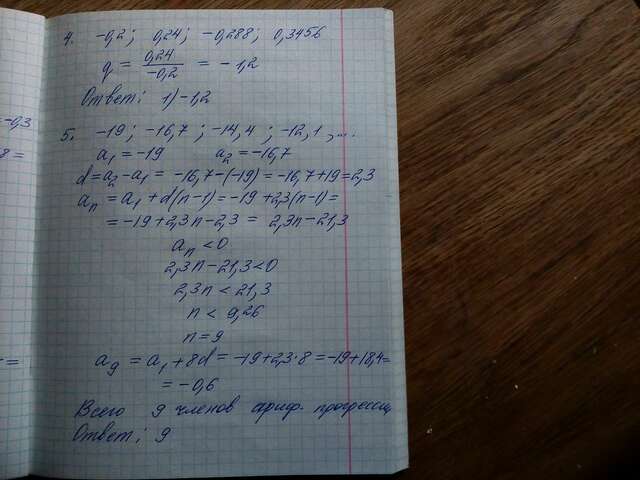 = -0,3
8 =
=
4. -0,2; 0,24; -0,288; 0,3456
q = 0,24 / -0,2 = -1,2
Ответ: 1) -1,2
5. -19; -16,7; -14,4; -12,1 ,...
a₁ = -19 a₂ = -16,7
d = a₂ - a₁ = -16,7 - (-19) = -16,7 + 19 = 2,3
aₙ = a₁ + d(n-1) = -19 + 2,3(n-1) =
= -19 + 2,3n - 2,3 = 2,3n - 21,3
aₙ < 0
2,3n - 21,3 < 0
2,3n < 21,3
n < 9,26
n = 9
a₉ = a₁ + 8d = -19 + 2,3·8 = -19 + 18,4 =
= -0,6
Всего 9 членов ариф. прогресси
Ответ: 9